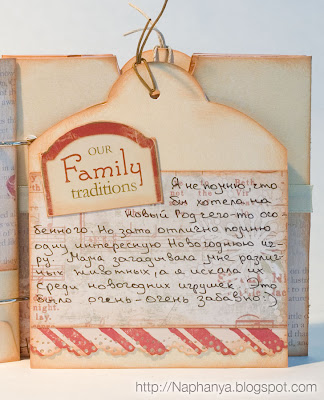 OUR
Family
traditions
Я не помню, что
бы хотела на
Новый Год чего-то осо-
бенного. Но зато отлично помню
одну интересную Новогоднюю иг-
ру. Мама загадывала мне различ-
ных животных, а я искала их
среди новогодних игрушек. Это
было очень-очень забавно :)
http://Naphanya.blogspot.com